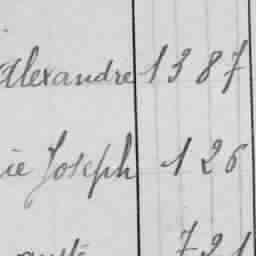 Alexandre 1387
ie Joseph 126
721